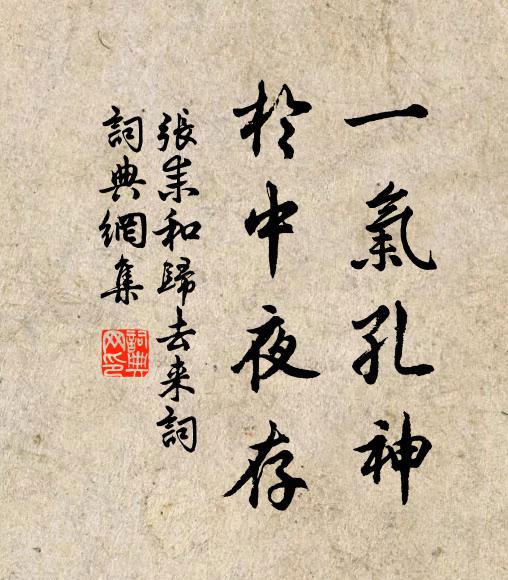 一氣孔神
於中夜存
張耒和歸去来詞
詞典網集
詞典網印